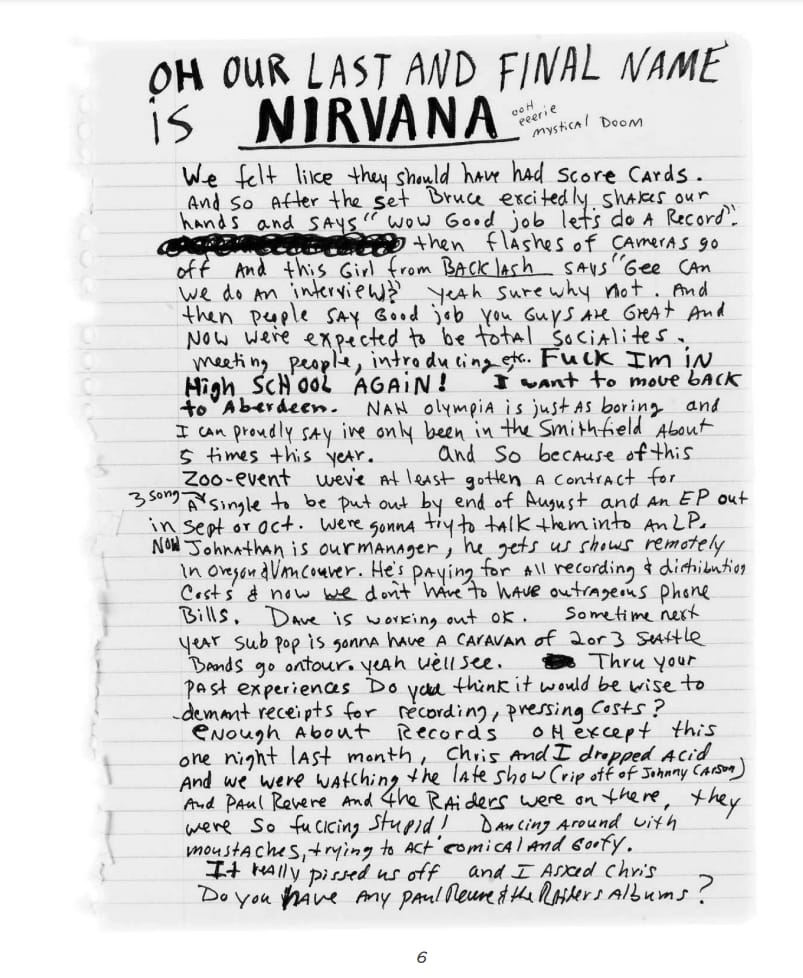 OH OUR LAST AND FINAL NAME
iS NIRVANA ooH eeerie mystical DOOM
We felt like they should HAVE HAD SCORE CARDS.
AND SO AFTER the set Bruce excitedly SHAKES OUR
HANDS and SAYS "WOW GOOD job let's do A Record".
then flAshes of CAMERAS go
off AND this GIRL from BACKLASH SAYS "GEE CAN
we do AN interview?" YeAH sure why not. AND
then people SAY GOOD job YOU GUYS ARE GREAT AND
NOW were expected to be total SOCIALITES.
meeting people, introducing etc. FUCK IM iN
HIGH SCHOOL AGAIN! I want to move BACK
to Aberdeen. NAH olympiA is just AS boring and
I CAN proudly SAY ive only been in the Smithfield About
5 times this YEAR. and so because of this
ZOO-event weve At least gotten A contract for
3 song A single to be put out by end of August and AN EP out
in Sept or Oct. were gonna try to tAlk them into AN LP.
NOW Johnathan is our MANAGER, he gets us shows remotely
in Oregon & VANCOUVER. He's PAYing for All recording & distribution
Costs & now we don't HAVE to HAVE outrageous phone
Bills. DAVE is working out OK. Sometime next
yeAr sub pop is gonna HAVE A CARAVAN of 2 or 3 SeAttle
BANDS go ontour. yeAH we'll see. Thru your
pAst experiences Do you think it would be wise to
demant receipts for recording, pressing costs?
enough About Records OH except this
one night last month, Chris AND I dropped ACID
AND we were watching the late show (rip off of Johnny CARSON)
AND PAUL Revere AND the RAiders were on there, they
were so fucking stupid! DANCING AROUND with
moustaches, trying to ACT comical AND Goofy.
It really pissed us off and I ASKED Chris
Do you HAVE ANY PAUL Revere & the RAiders Albums?
6